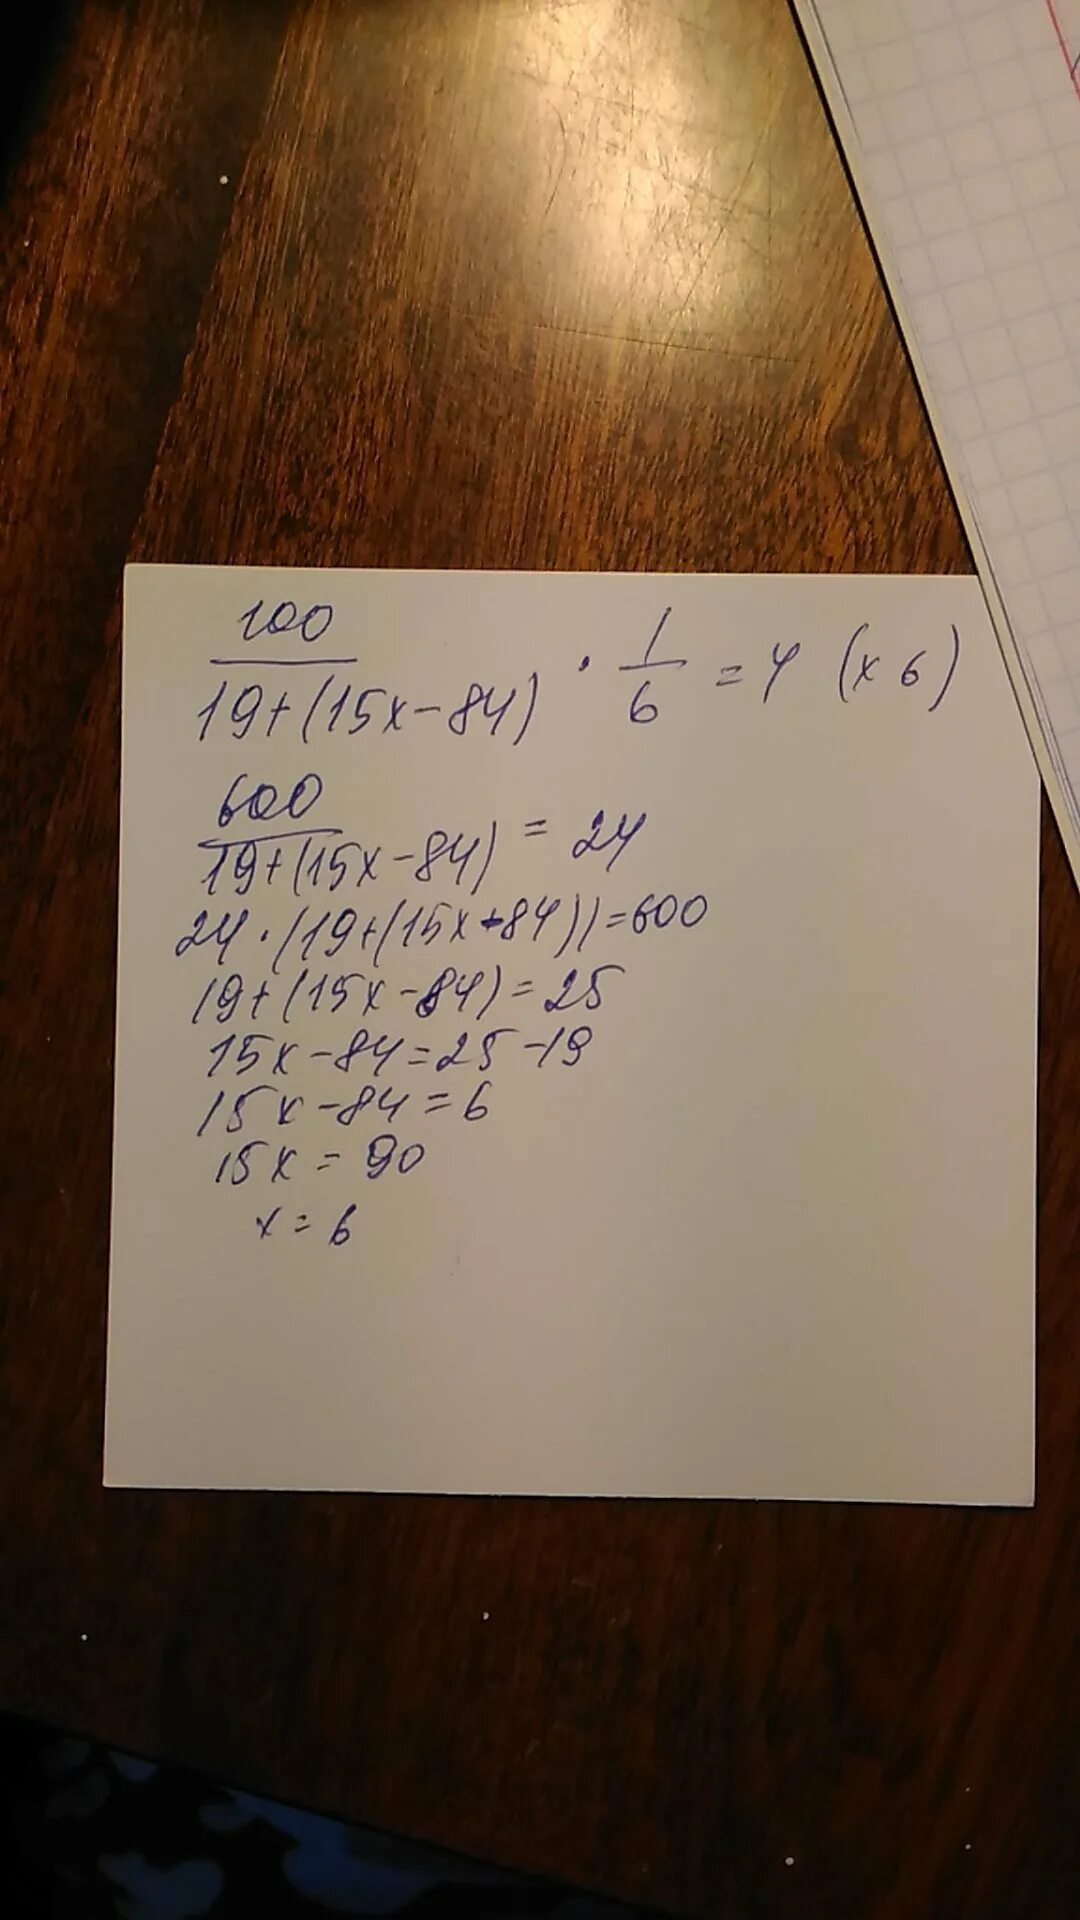 100/(19+(15x-84)) · 1/6 = 4 (x 6)
600/(19+(15x-84)) = 24
24·(19+(15x-84))=600
19+(15x-84)=25
15x-84=25-19
15x-84=6
15x=90
x=6